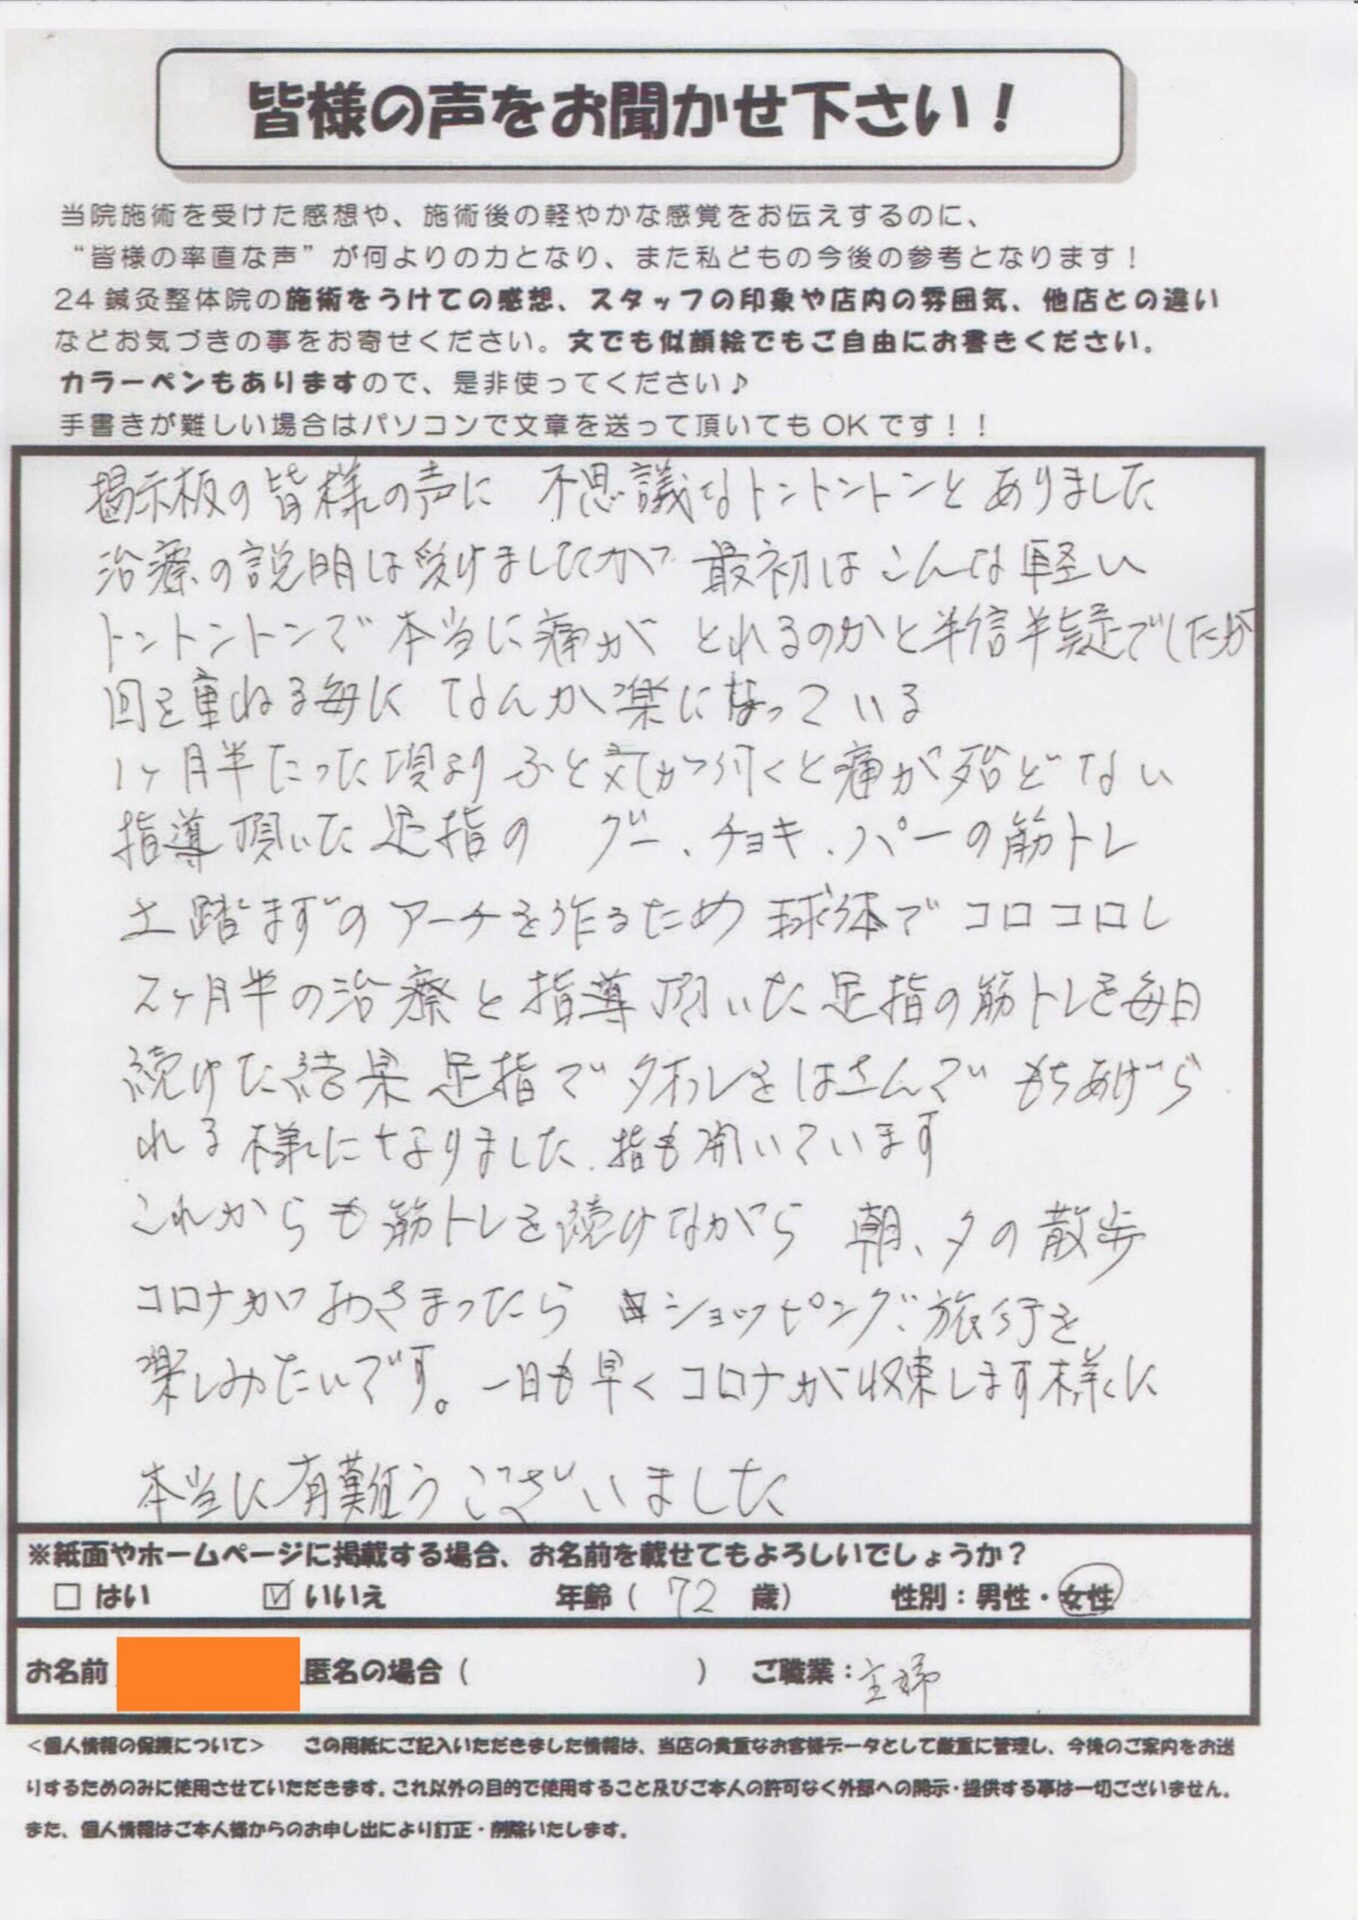 皆様の声をお聞かせ下さい!
当院施術を受けた感想や、施術後の軽やかな感覚をお伝えするのに、
“皆様の率直な声”が何よりの力となり、また私どもの今後の参考となります!
24鍼灸整体院の施術をうけての感想、スタッフの印象や店内の雰囲気、他店との違い
などお気づきの事をお寄せください。文でも似顔絵でもご自由にお書きください。
カラーペンもありますので、是非使ってください♪
手書きが難しい場合はパソコンで文章を送って頂いてもOKです!!
掲示板の皆様の声に 不思議なトントントンとありました
治療の説明は受けましたが 最初はこんな軽い
トントントンで本当に痛が とれるのかと半信半疑でしたが
回を重ねる毎に なんか楽になっている
1ヶ月半たった頃より ふと気が付くと痛が殆どない
指導頂いた足指の グー、チョキ、パーの筋トレ
土踏まずのアーチを作るため球体でコロコロし
2ヶ月半の治療と指導頂いた足指の筋トレを毎日
続けた結果 足指でタオルをはさんで もちあげら
れる様になりました、指も開いています
これからも筋トレを続けながら 朝、夕の散歩
コロナがおさまったら ショッピング、旅行を
楽しみたいです。一日も早くコロナが収束します様に
本当に有難うございました
※紙面やホームページに掲載する場合、お名前を載せてもよろしいでしょうか?
□ はい ☑ いいえ 年齢( 72 歳) 性別:男性・女性
お名前 匿名の場合( ) ご職業:主婦
<個人情報の保護について> この用紙にご記入いただきました情報は、当店の貴重なお客様データとして厳重に管理し、今後のご案内をお送
りするためのみに使用させていただきます。これ以外の目的で使用すること及びご本人の許可なく外部への開示・提供する事は一切ございません。
また、個人情報はご本人様からのお申し出により訂正・削除いたします。